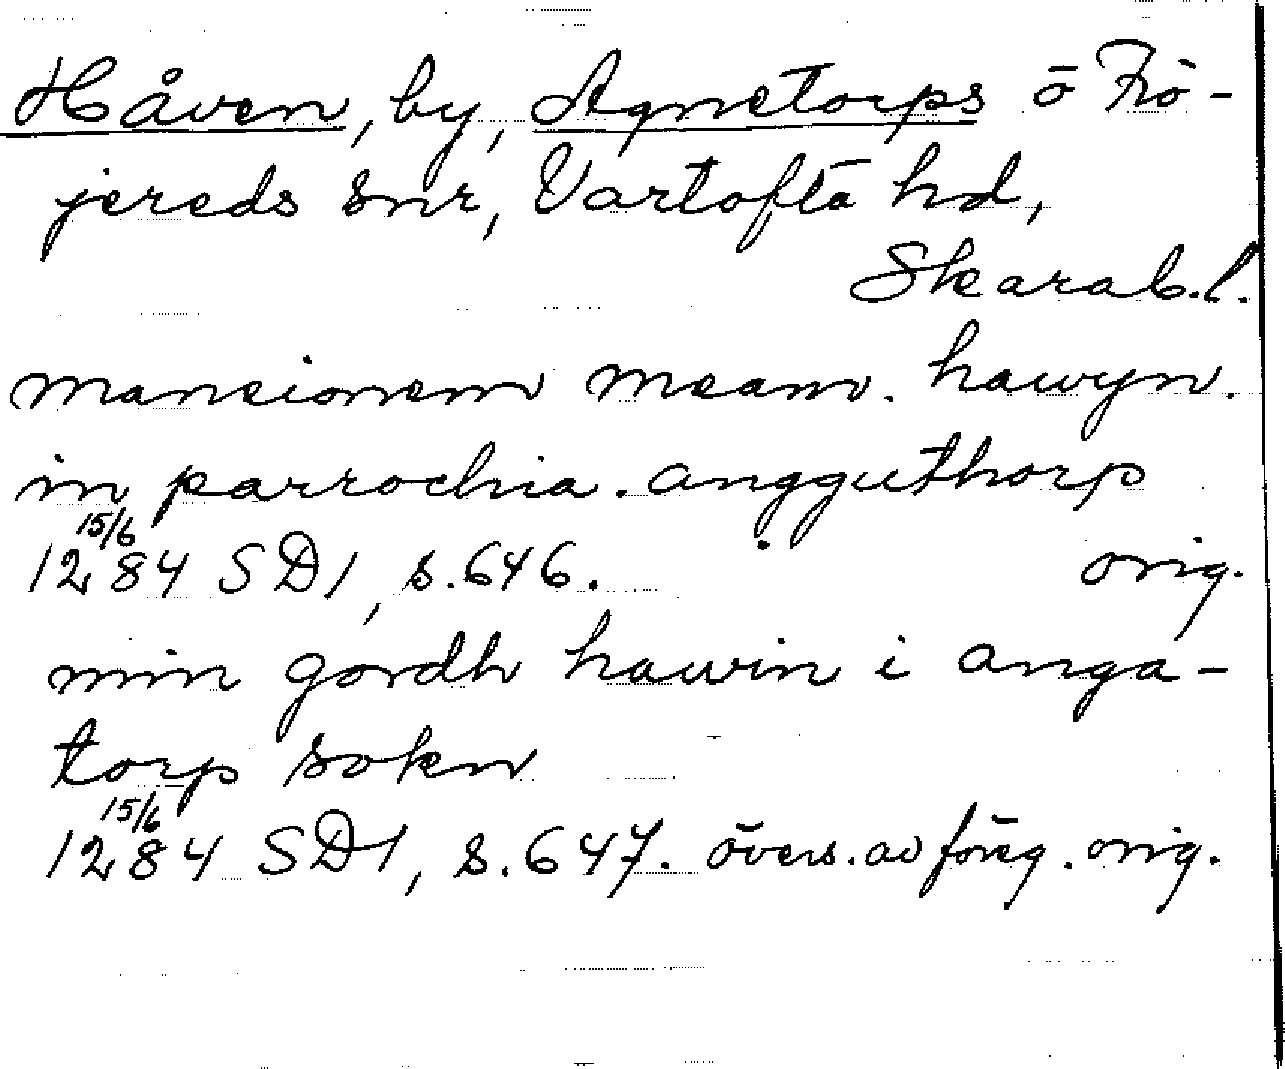 Håven, by, Agnetorps o Frö-
jereds snr, Vartofta hd,
Skarab.l.
mansionem meam. hawyn.
in parrochia. angguthorp
15/6
1284 SD1, s.646. orig.
min gordh hawin i anga-
torp sokn
15/6
1284 SD1, s.647. övers. av föreg. orig.